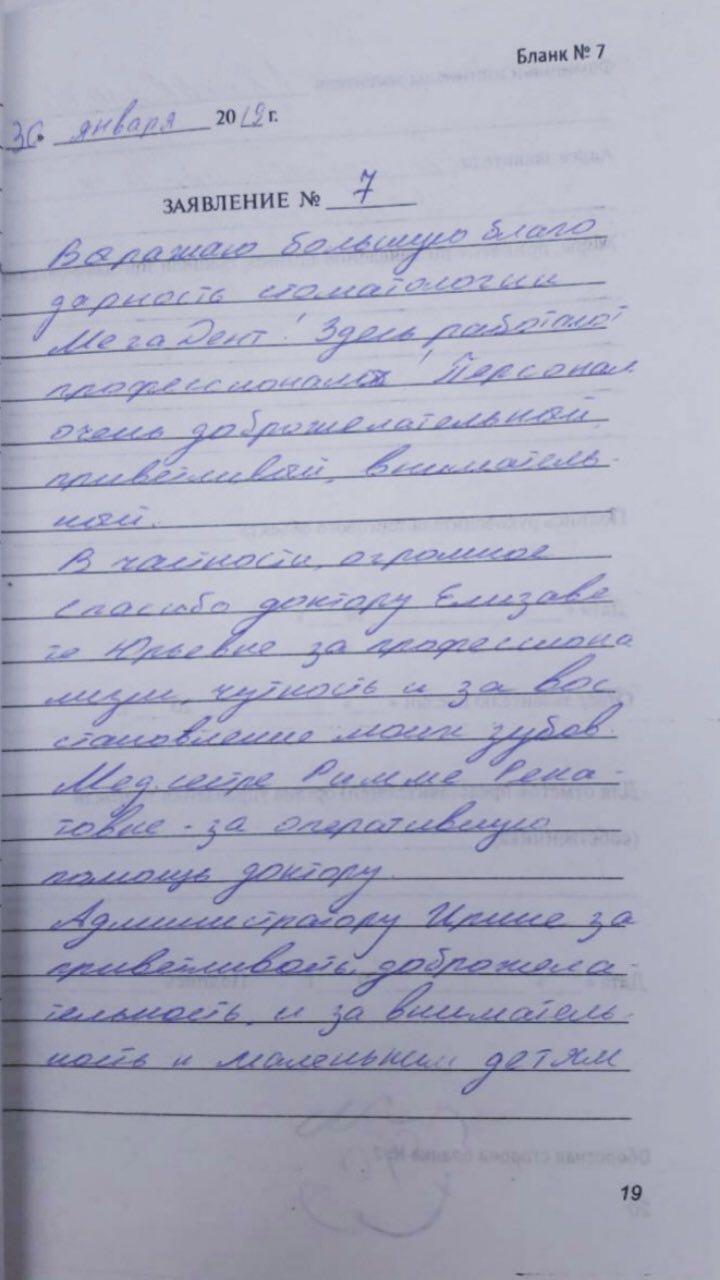 Бланк № 7
30 января 2019 г.
ЗАЯВЛЕНИЕ № 7
Выражаю большую благо
дарность стоматологии
МегаДент! Здесь работают
профессионалы! Персонал
очень доброжелательный,
приветливый, вниматель-
ный.
В частности, огромное
спасибо доктору Елизаве
те Юрьевне за профессиона
лизм чуткость и за вос
становление моих зубов.
Мед.сестре Римме Рена-
товне - за оперативную
помощь доктору.
Администратору Ирине за
приветливость, доброжела-
тельность, и за вниматель-
ность к маленьким детям
19